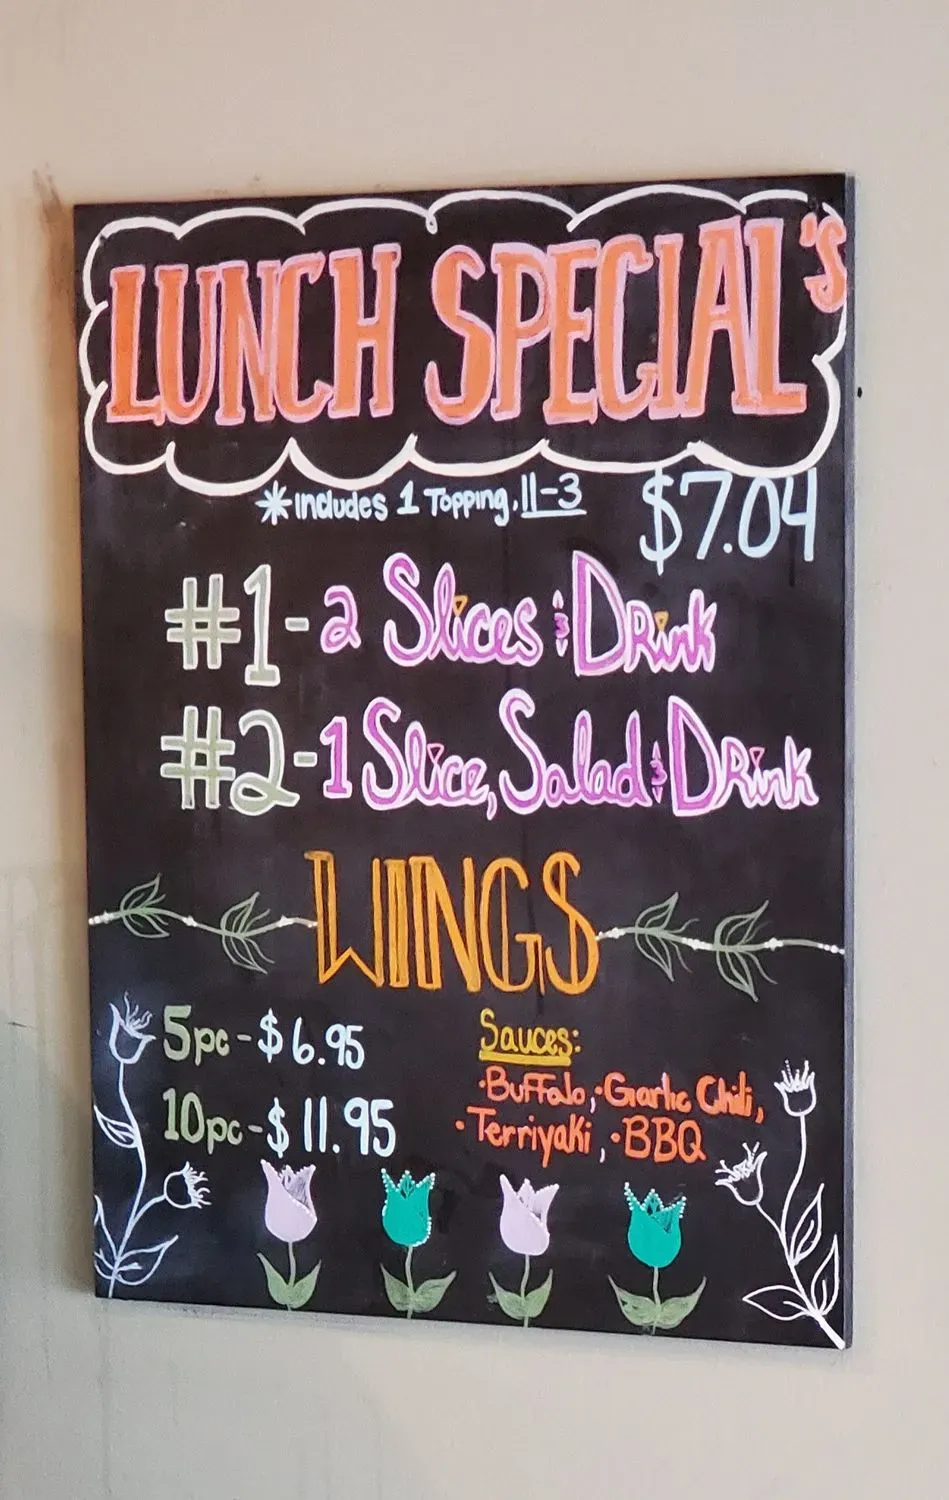 LUNCH SPECIAL'S
*Includes 1 Topping, 11-3
$7.04
#1-2 Slices & Drink
#2-1 Slice, Salad & Drink
WINGS
5pc-$6.95
10pc-$11.95
Sauces:
·Buffalo, ·Garlic Chili,
·Terriyaki, ·BBQ